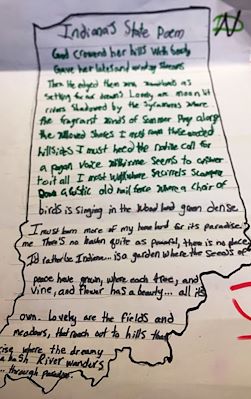 Indiana's State Poem
God crowned her hills with beauty
Gave her lakes and winding streams
Then He edged them all woodlands as
setting for our dreams Lovely are moon lit
rivers Shadowed by the Sycamores where
the fragrant winds of Summer Play along
the willowed Shores I must roam those wooded
hillsides I must heed the native call for
a pagan voice within me seems to answer
to it all I must walk where Squirrels Scamper
Down a rustic old rail fence where a choir of
birds is singing in the Woodland green dense
I must learn more of my homeland for it's paradise
me There's no haven quite as peaceful, there is no place
I'd rather be Indiana... is a garden where the seeds of
peace have grown, where each tree, and
vine, and flower has a beauty... all its
own. Lovely are the fields and
meadows, that reach out to hills that
rise where the dreamy
Wabash River wanders
... through paradise.